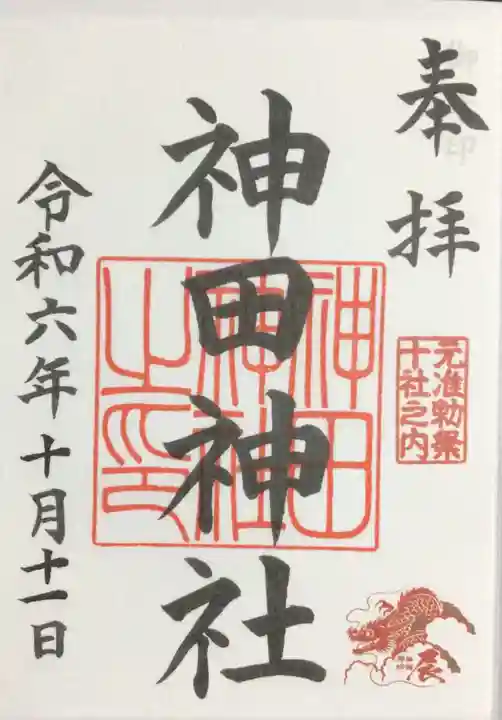 奉拝
元准勅祭
十社之内
辰
神田神社
神田
神社
之印
令和六年十月十一日